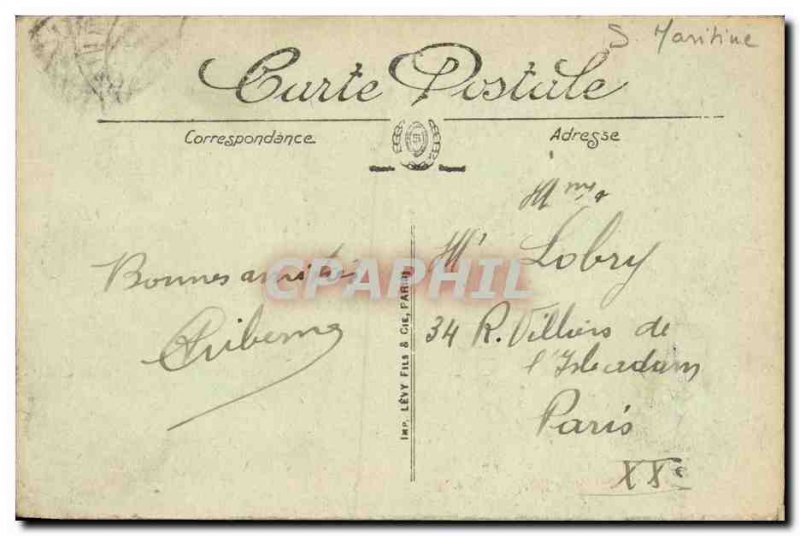 S. Maritime
Carte Postale
Correspondance
Adresse
Mme
Mr Lobry
Bonnes amitiés
34 R. Villiers de
l'Isle adam
Paris
XXe
IMP. LÉVY FILS & CIE, PARIS
CPAPHIL